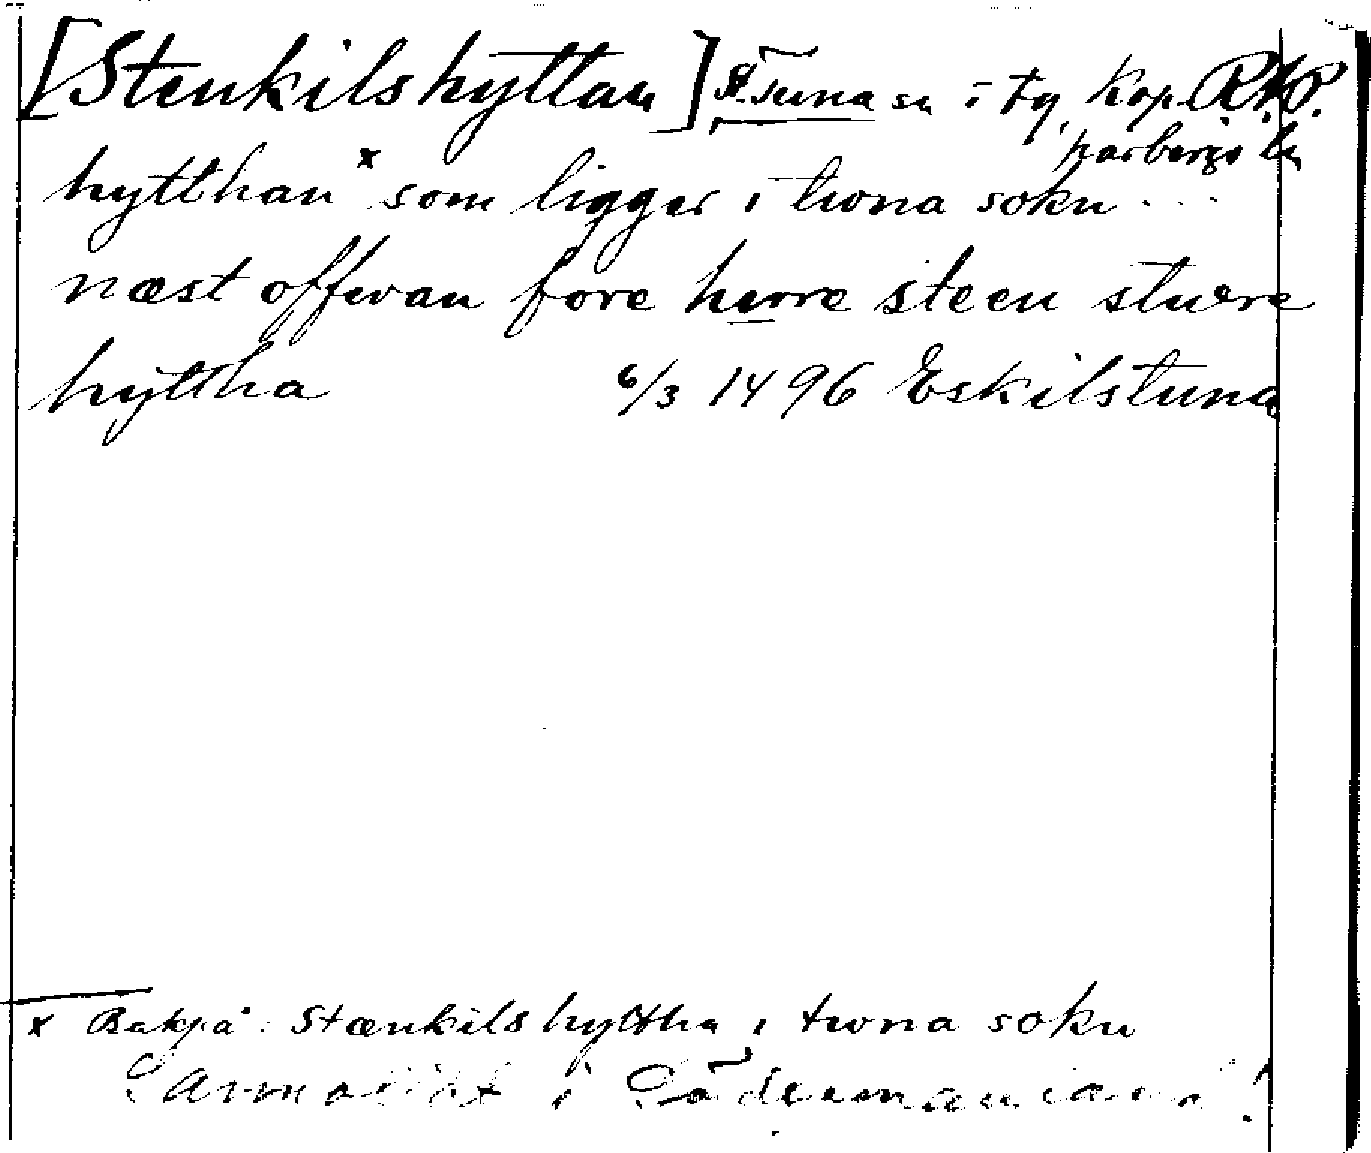 [Stenkilshyttan] St. Tuna sn i Fg Kop. RAP.
Kopparbergs län
hytthan x som ligger i twna sokn ...
næst offwan fore herre steen stwre
hyttha 6/3 1496 Eskilstuna
x Bakpå: Stænkils hyttha i twna sokn
i Södermanland!